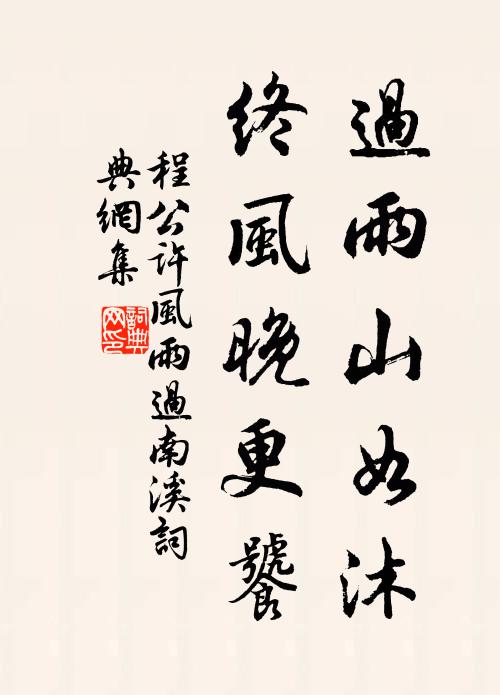 過雨山如沐
終風晚更饕
程公許風雨過南溪詞
典網集
詞典網印